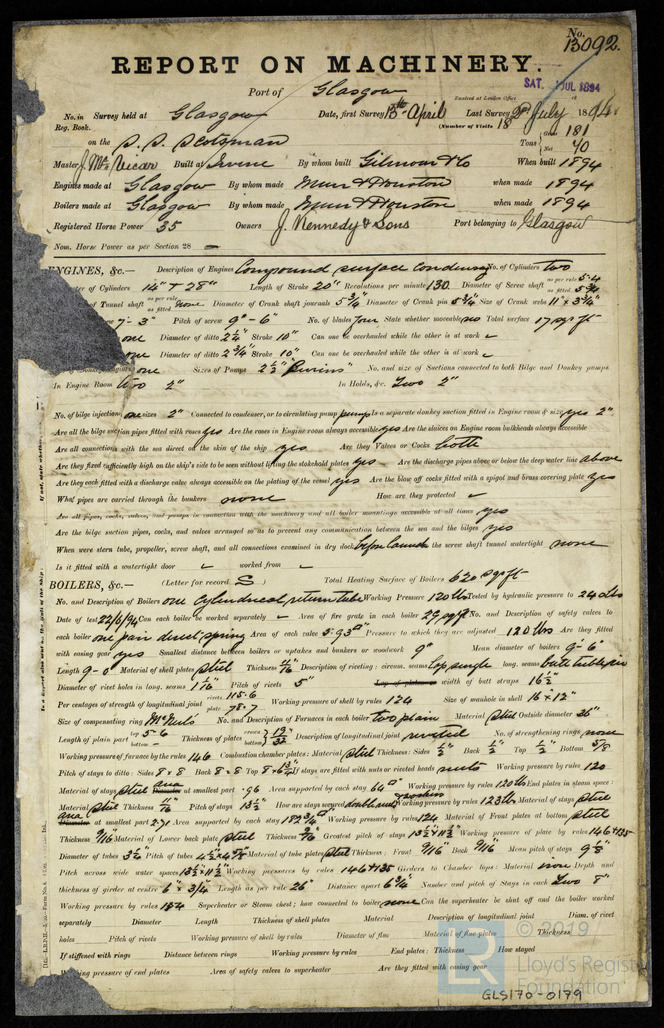 No. 13092.
REPORT ON MACHINERY.
Port of Glasgow
SAT. JUL 1894
Received at London Office
No. in Survey held at Glasgow Date, first Survey 13th April Last Survey 2d July 1894
Reg. Book. (Number of Visits 18
on the S. S. Scotsman Tons Gross 181 Net 70
Master J. Mc Vicar Built at Irvine By whom built Gilmour & Co When built 1894
Engines made at Glasgow By whom made Muir & Houston when made 1894
Boilers made at Glasgow By whom made Muir & Houston when made 1894
Registered Horse Power 35 Owners J. Kennedy & Sons Port belonging to Glasgow
Nom. Horse Power as per Section 28 —
ENGINES, &c.— Description of Engines Compound surface condensing No. of Cylinders two
ter of Cylinders 14" & 28" Length of Stroke 20" Revolutions per minute 130 Diameter of Screw shaft as per rule 5.4 as fitted 5 3/4
of Tunnel shaft as per rule as fitted none Diameter of Crank shaft journals 5 3/4 Diameter of Crank pin 5 3/4 Size of Crank webs 11" x 3 3/4"
7'- 3" Pitch of screw 9"- 6" No. of blades four State whether moveable no Total surface 17 sqr ft
one Diameter of ditto 2 1/4" Stroke 10" Can one be overhauled while the other is at work
one Diameter of ditto 2 3/4" Stroke 10" Can one be overhauled while the other is at work
one Sizes of Pumps 2 1/2" No. and size of Suctions connected to both Bilge and Donkey pumps
In Engine Room two 2" In Holds, &c. Two 2"
No. of bilge injections one sizes 2" Connected to condenser, or to circulating pump pump Is a separate donkey suction fitted in Engine room & size yes 2"
Are all the bilge suction pipes fitted with roses yes Are the roses in Engine room always accessible yes Are the sluices on Engine room bulkheads always accessible
Are all connections with the sea direct on the skin of the ship yes Are they Valves or Cocks both
Are they fixed sufficiently high on the ship's side to be seen without lifting the stokehold plates yes Are the discharge pipes above or below the deep water line above
Are they each fitted with a discharge valve always accessible on the plating of the vessel yes Are the blow off cocks fitted with a spigot and brass covering plate yes
What pipes are carried through the bunkers none How are they protected
Are all pipes, cocks, valves, and pumps in connection with the machinery and all boiler mountings accessible at all times yes
Are the bilge suction pipes, cocks, and valves arranged so as to prevent any communication between the sea and the bilges yes
When were stern tube, propeller, screw shaft, and all connections examined in dry dock before launch Is the screw shaft tunnel watertight none
Is it fitted with a watertight door worked from
BOILERS, &c.— (Letter for record S) Total Heating Surface of Boilers 620 sqr ft
No. and Description of Boilers one Cylindrical return tube Working Pressure 120 lbs Tested by hydraulic pressure to 240 lbs
Date of test 22/6/94 Can each boiler be worked separately Area of fire grate in each boiler 29 sqr ft No. and Description of safety valves to
each boiler one pair direct spring Area of each valve 5.93" Pressure to which they are adjusted 120 lbs Are they fitted
with easing gear yes Smallest distance between boilers or uptakes and bunkers or woodwork 9" Mean diameter of boilers 9'- 6"
Length 9'- 0" Material of shell plates steel Thickness Description of riveting: circum. seams lap single long. seams
Diameter of rivet holes in long. seams 1 1/16" Pitch of rivets 5" width of butt straps 16 1/2"
Per centages of strength of longitudinal joint rivets 115.6 plate 78.7 Working pressure of shell by rules 124 Size of manhole in shell 16" x 12"
Size of compensating ring McNeils No. and Description of Furnaces in each boiler two plain Material steel Outside diameter 36"
Length of plain part top 5-6 bottom Thickness of plates crown bottom 19/32 Description of longitudinal joint riveted No. of strengthening rings none
Working pressure of furnace by the rules 146 Combustion chamber plates: Material steel Thickness: Sides 1/2" Back 1/2" Top 1/2" Bottom 5/8
Pitch of stays to ditto: Sides 8 x 8 Back 8 x 8 Top If stays are fitted with nuts or riveted heads nuts Working pressure by rules 120
Material of stays steel area at smallest part .96 Area supported by each stay 64 Working pressure by rules 120 lbs End plates in steam space:
Material steel Thickness Pitch of stays 13 1/2" How are stays secured Working pressure by rules 123 lbs Material of stays steel
area at smallest part 2.71 Area supported by each stay 182 Working pressure by rules 124 Material of Front plates at bottom steel
Thickness 9/16 Material of Lower back plate steel Thickness 9/16" Greatest pitch of stays 13 1/2 x 11 1/2" Working pressure of plate by rules 146 & 135
Diameter of tubes 3 1/2" Pitch of tubes Material of tube plates steel Thickness: Front 9/16" Back 9/16" Mean pitch of stays 9 5/8"
Pitch across wide water spaces 13 1/2 x 11 1/2" Working pressures by rules 146 & 135 Girders to Chamber tops: Material iron Depth and
thickness of girder at centre 6" x 3/4 Length as per rule 26" Distance apart 6 3/4 Number and pitch of Stays in each Two 8"
Working pressure by rules Superheater or Steam chest; how connected to boiler none Can the superheater be shut off and the boiler worked
separately Diameter Length Thickness of shell plates Material Description of longitudinal joint Diam. of rivet
holes Pitch of rivets Working pressure of shell by rules Diameter of flue Material of flue plates Thickness
If stiffened with rings Distance between rings Working pressure by rules End plates: Thickness How stayed
Working pressure of end plates Area of safety valves to superheater Are they fitted with easing gear
If not, state whether
© 2019
Lloyd's Register
Foundation
GLS170-0179